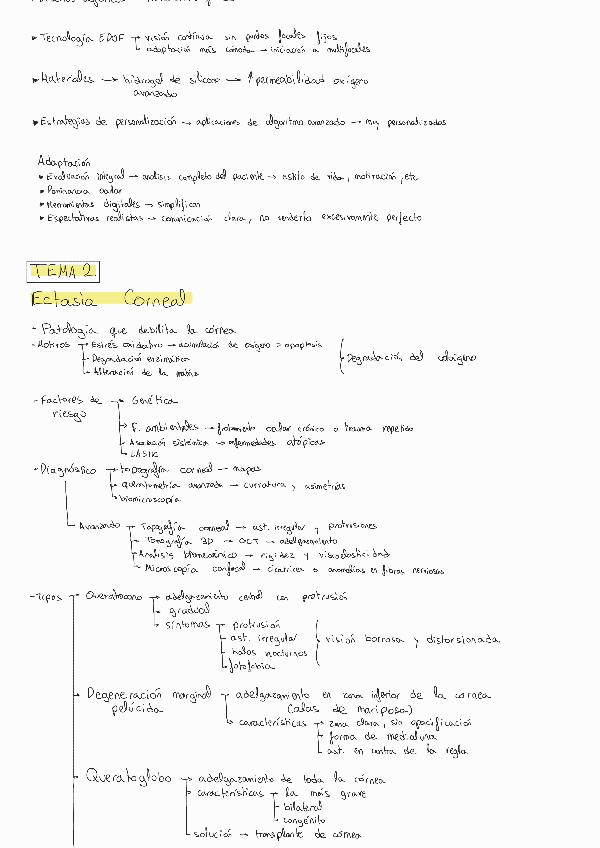 ▸ Tecnología EDOF → visión continua sin puntos focales fijos
↳ adaptación más cómoda → iniciación a multifocales
▸ Materiales → hidrogel de silicona → ↑ permeabilidad oxígeno
avanzado
▸ Estrategias de personalización → aplicaciones de algoritmo avanzado → muy personalizadas
Adaptación
▸ Evaluación integral → análisis completo del paciente → estilo de vida, motivación, etc
▸ Dominancia ocular
▸ Herramientas digitales → simplifican
▸ Expectativas realistas → comunicación clara, no venderlo excesivamente perfecto
TEMA 2
Ectasia Corneal
- Patología que debilita la córnea
- Motivos → Estrés oxidativo → acumulación de oxígeno = apoptosis
Degradación enzimática
Alteración de la matriz
Degradación del colágeno
- Factores de riesgo → Genética
F. ambientales → frotamiento ocular crónico o trauma repetido
Asociación sistémica → enfermedades atópicas
LASIK
- Diagnóstico → topografía corneal → mapas
queratometría avanzada → curvatura y asimetrías
biomicroscopía
Avanzado → Topografía corneal → ast. irregular y protrusiones
Tomografía 3D → OCT → adelgazamiento
Análisis biomecánico → rigidez y viscoelasticidad
Microscopía confocal → cicatrices o anomalías en fibras nerviosas
- Tipos → Queratocono → adelgazamiento central con protrusión
gradual
síntomas → protrusión
ast. irregular
halos nocturnos
fotofobia
visión borrosa y distorsionada
Degeneración marginal → adelgazamiento en zona inferior de la córnea
pelúcida (alas de mariposa)
características → zona clara, sin opacificación
forma de medialuna
ast. en contra de la regla
Queratoglobo → adelgazamiento de toda la córnea
características → la más grave
bilateral
congénito
solución → transplante de córnea